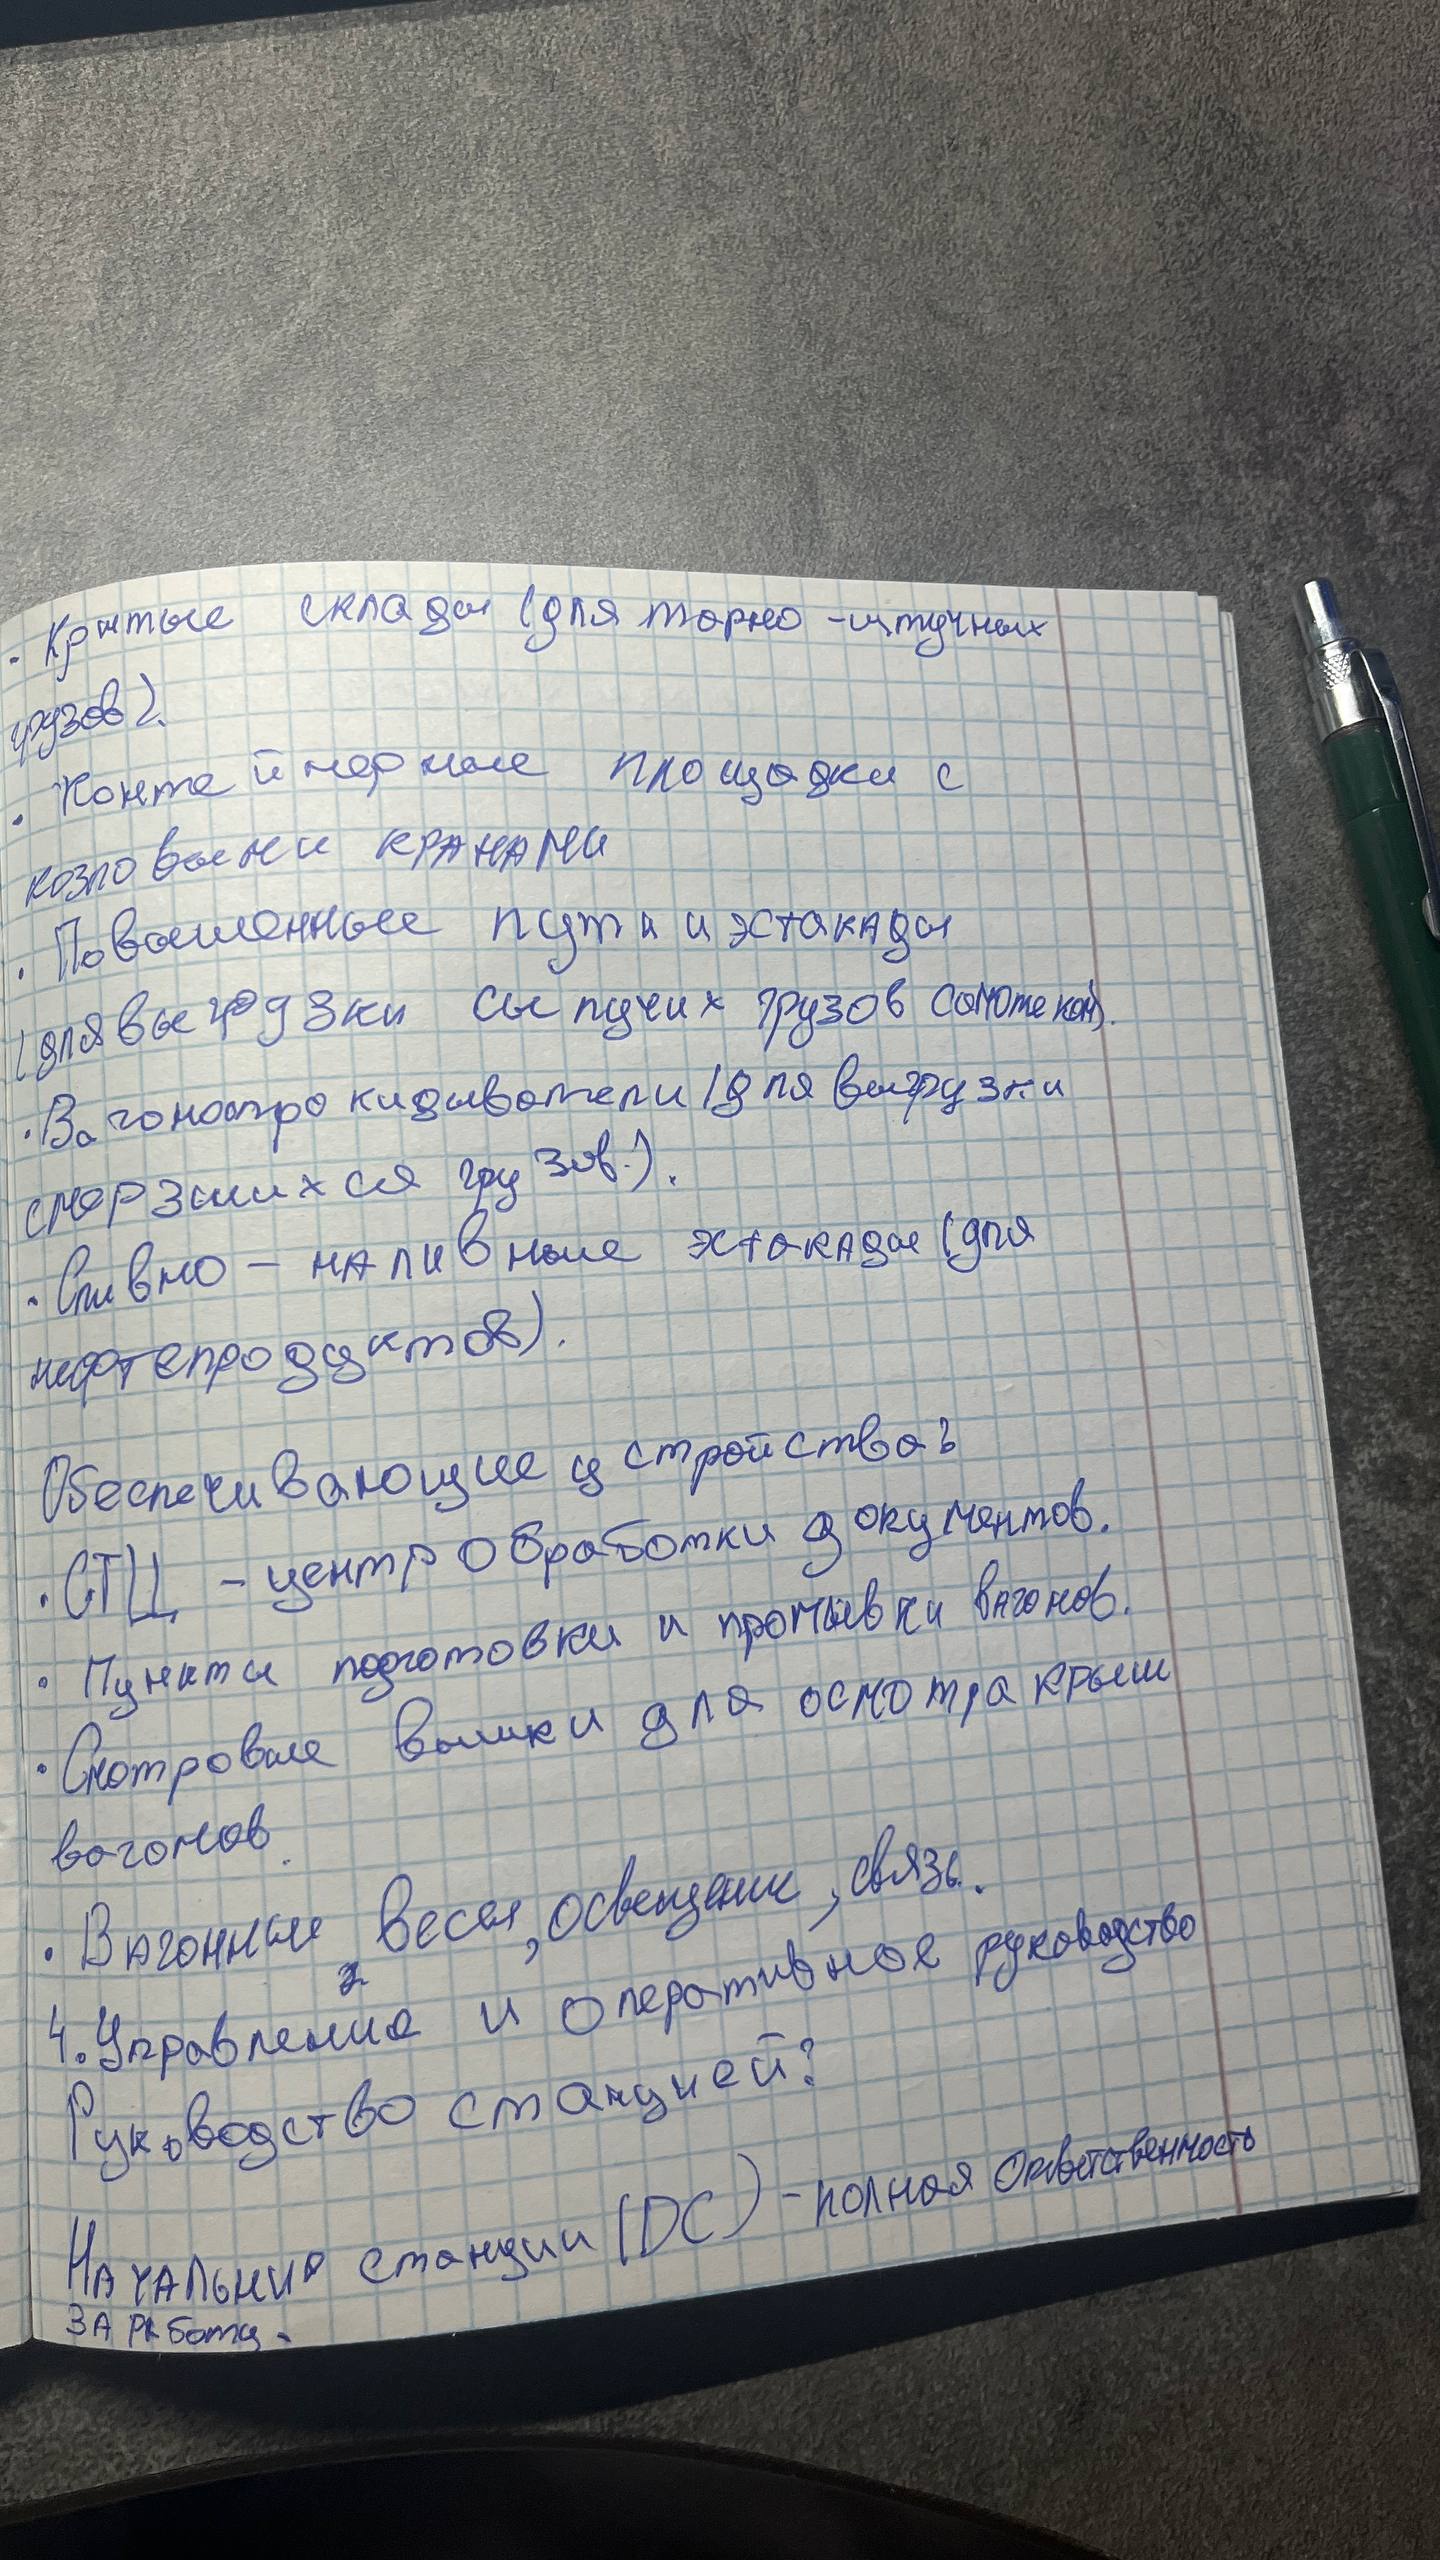 · Крытые склады (для тарно-штучных
грузов).
· Контейнерные площадки с
козловыми кранами
· Повышенные пути и эстакады
(для выгрузки сыпучих грузов самотеком).
· Вагоноопрокидыватели (для выгрузки
смерзшихся грузов.).
· Сливно-наливные эстакады (для
нефтепродуктов).
Обеспечивающие устройства:
· СТЦ - центр обработки документов.
· Пункты подготовки и промывки вагонов.
· Смотровые вышки для осмотра крыш
вагонов.
· Вагонные весы, освещение, связь.
4. Управление и оперативное руководство
Руководство станцией:
Начальник станции (DC) - полная Ответственность
за работу.